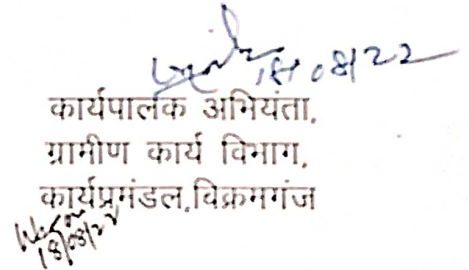 18/08/22
कार्यपालक अभियंता,
ग्रामीण कार्य विभाग,
कार्यप्रमंडल,विक्रमगंज
18/08/22